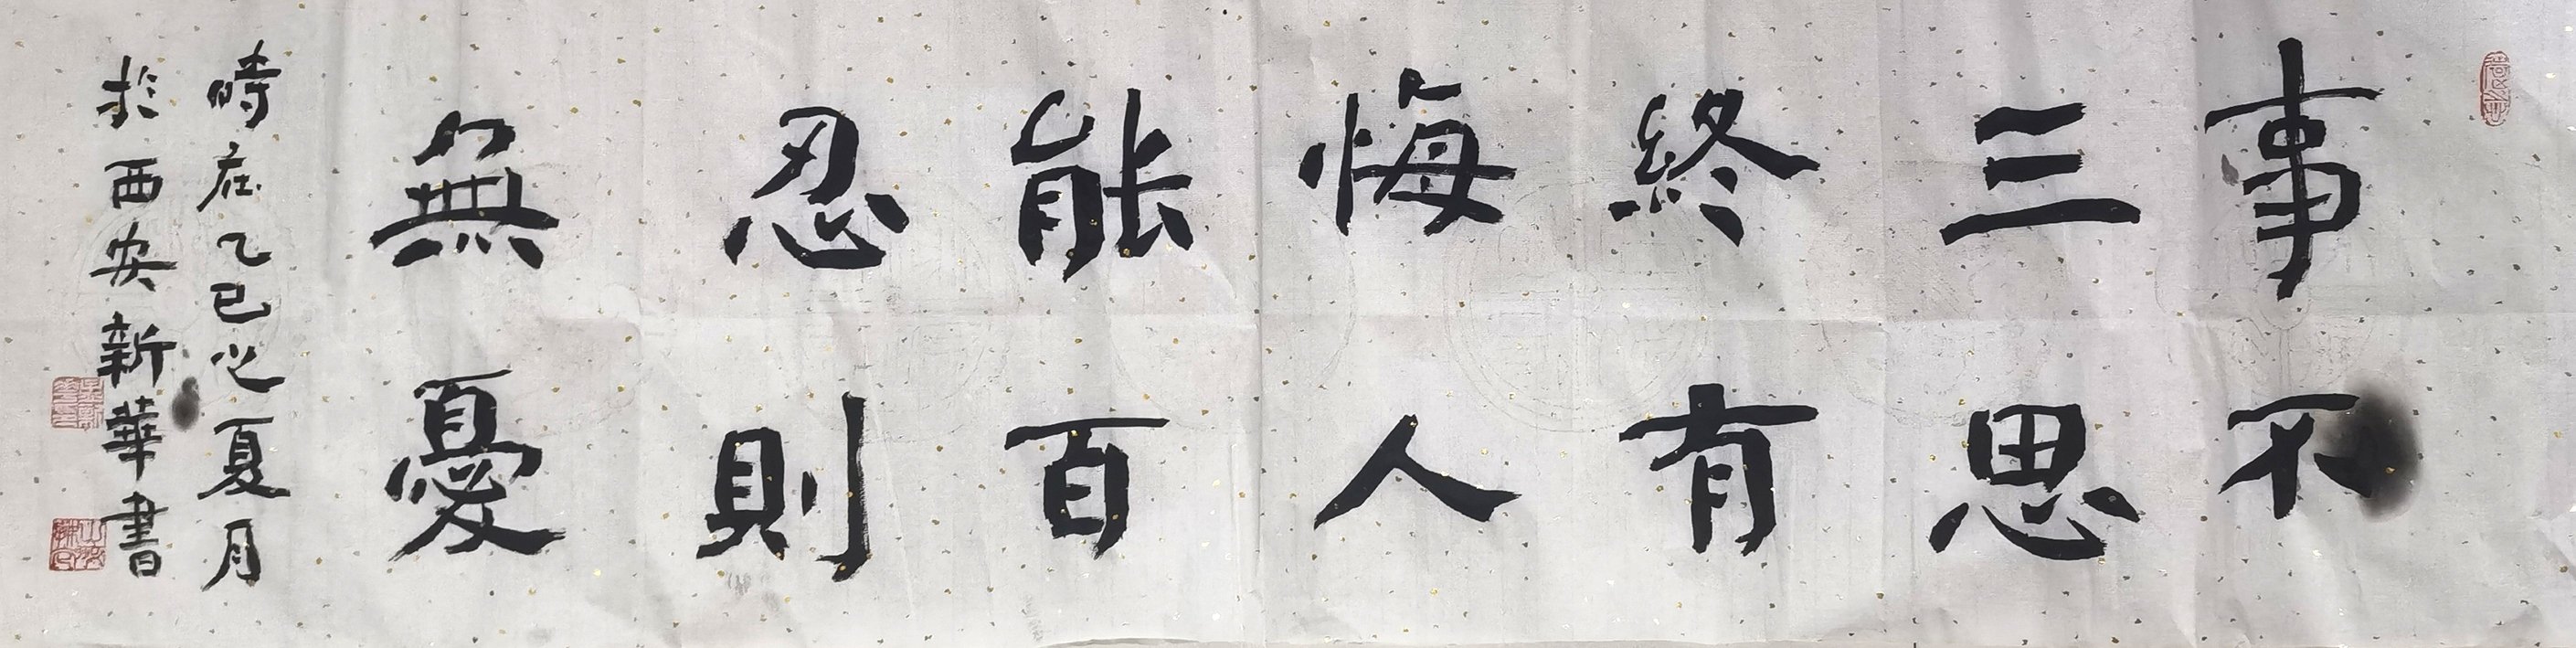 事不
三思
終有
悔人
能百
忍則
無憂
時在乙巳之夏月
於西安新華書